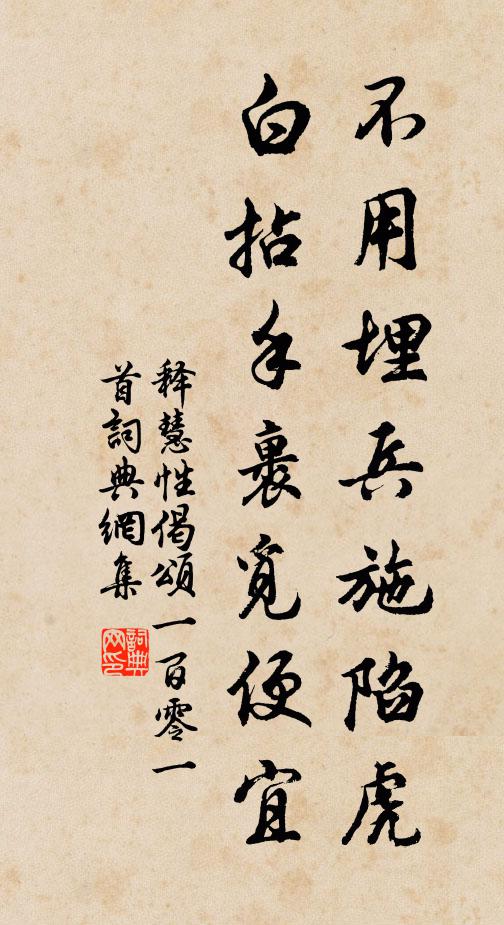 不用埋兵施陷虎
白拈手裹觅便宜
释慧性偈頌一百零一
首詞典網集
詞典网印